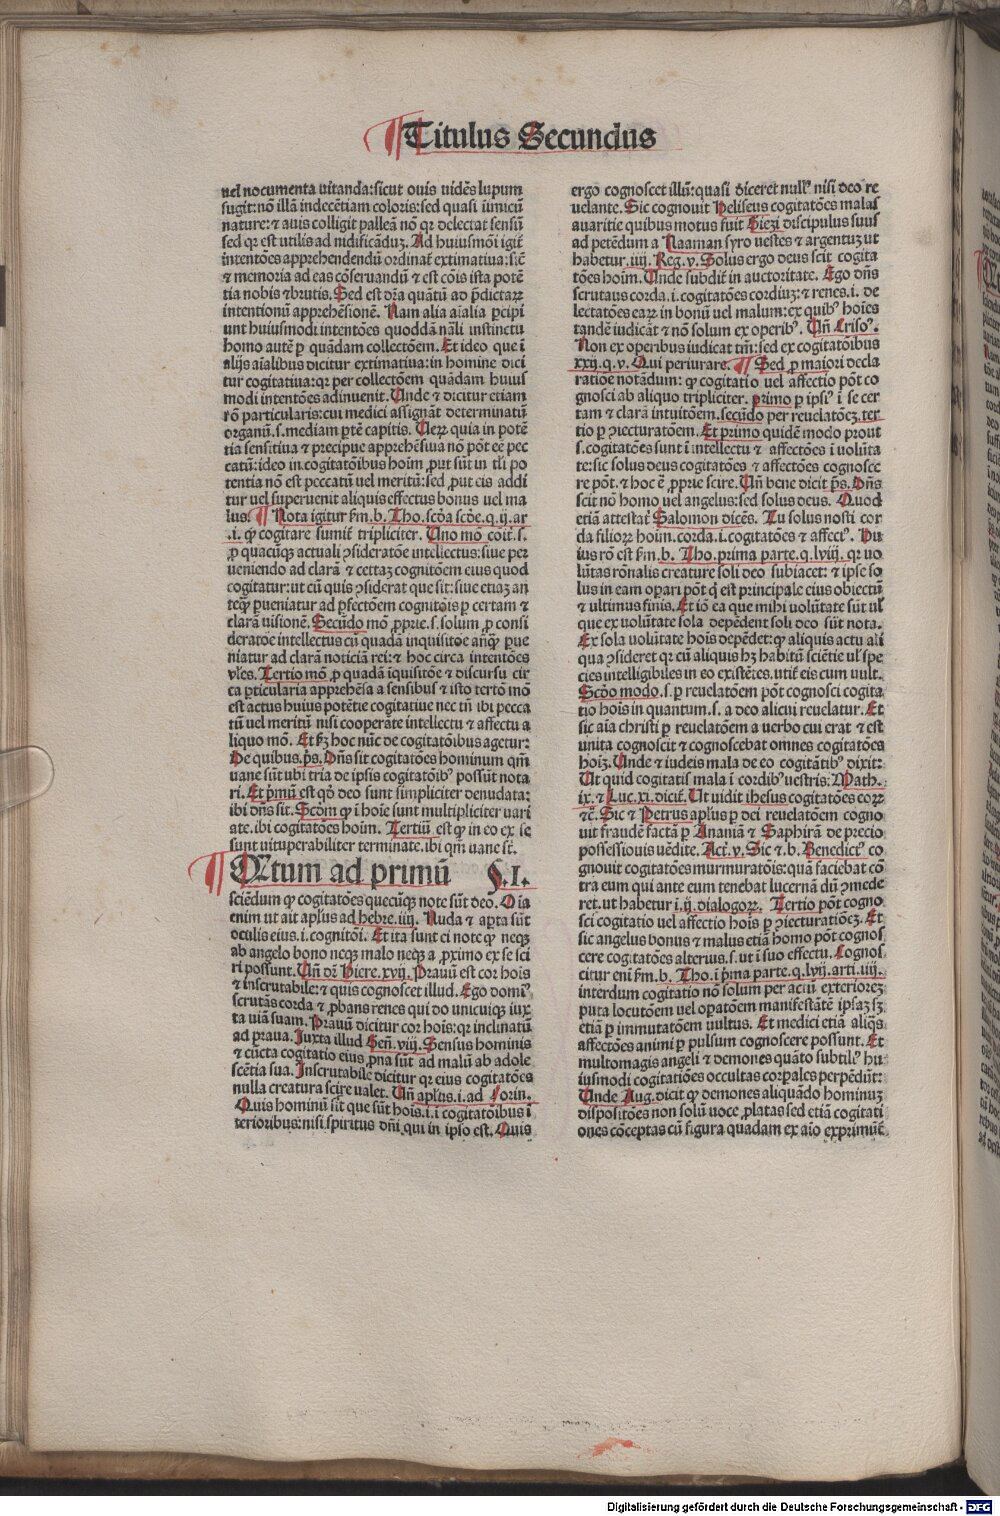 Titulus Secundus
uel nocumenta uitanda: sicut ouis uidēs lupum
fugit: nō illā indecētiam coloris: sed quasi īimicū
nature: ⁊ auis colligit palleā nō qꝛ delectat sensū
sed qꝛ est utilis ad nidificādūꝫ. Ad huiusmōi igit᷑
intentōes apprehendendū ordinat᷑ extimatiua: sic̄
⁊ memoria ad eas cōseruandū ⁊ est cōis ista potē
tia nobis ⁊ brutis. Sed est dr̄a quātū ad p̄dictaꝝ
intentionū apprehēsionē. Nam alia aīalia ꝑcipi
unt huiusmodi intentōes quoddā nāli instinctu
homo autē ꝑ quādam collectōem. Et ideo que ī
alijs aīalibus dicitur extimatiua: in homine dici
tur cogitatiua: qꝛ per collectōem quādam huius
modi intentōes adinuenit. Unde ⁊ dicitur etiam
rō particularis: cui medici assignāt determinatū
organū. s. mediam ꝑtē capitis. Ueꝝ quia in potē
tia sensitiua ⁊ precipue apprehēsiua nō pōt eē pec
catū: ideo in cogitatōibus hoim ꝓut sūt in tli po
tentia nō est peccatū uel meritū: sed ꝓut eis addi
tur uel superuenit aliquis effectus bonus uel ma
lus. ¶ Nota igitur fm. b. Tho. scd̄a scd̄e. q. ij. ar
.i. ꝙ cogitare sumit᷑ tripliciter. Uno mō coit᷑. s.
ꝓ quacūqꝫ actuali ꝯsideratōe intellectus: siue per
ueniendo ad clarā ⁊ certaꝫ cognitōem eius quod
cogitatur: ut cū quis ꝯsiderat que sit: siue etiaꝫ an
teqꝫ ꝑueniatur ad ꝑfectōem cognitōis ꝑ certam ⁊
clarā uisionē. Secūdo mō ꝓprie. s. solum ꝓ consi
deratōe intellectus cū quadā inquisitōe anqꝫ ꝑue
niatur ad clarā noticiā rei: ⁊ hoc circa intentōes
vl̄es. Tertio mō ꝓ quadā īquisitōe ⁊ discursu cir
ca ꝑticularia apprehēsa a sensibus ⁊ isto tertō mō
est actus huius potētie cogitatiue nec tn̄ ibi pecca
tū uel meritū nisi cooperāte intellectu ⁊ affectu a
liquo mō. Et fꝫ hoc nūc de cogitatōibus agetur:
De quibus. p̄s. Dn̄s sit cogitatōes hominum qm̄
uane sūt ubi tria de ipsis cogitatōibꝰ possūt nota
ri. Et p̄mū est qꝫ deo sunt simpliciter denudata:
ibi dn̄s sit. Scd̄m ꝙ ī hoīe sunt multipliciter uari
ate. ibi cogitatōes hoim. Tertiū est ꝙ in eo ex se
sunt uituperabiliter terminate. ibi qm̄ uane st̄.
¶ Qantum ad primū §. I.
sciēdum ꝙ cogitatōes quecūqꝫ note sūt deo. Oīa
enim ut ait apl̄us ad hebre. iiij. Nuda ⁊ apta sūt
oculis eius. i. cognitōi. Et ita sunt ei note ꝙ neqꝫ
ab angelo bono neqꝫ malo neqꝫ a ꝓximo ex se sci
ri possunt. Un̄ dr̄ Hiere. xvij. Prauū est cor hois
⁊ inscrutabile: ⁊ quis cognoscet illud. Ego domiꝰ
scrutās corda ⁊ ꝓbans renes qui do unicuiqꝫ iux
ta uiā suam. Prauū dicitur cor hois: qꝛ inclinatū
ad praua. Juxta illud Gen̄. viij. Sensus hominis
⁊ cūcta cogitatio eius ꝓna sūt ad malū ab adole
scētia sua. Inscrutabile dicitur qꝛ eius cogitatōes
nulla creatura scire ualet. Un̄ apl̄us. i. ad Corin.
Quis hominū sit que sūt hois. i. i cogitatōibus i
terioribus: nisi spiritus dn̄i qui in ipso est. Quis
ergo cognoscet illū: quasi diceret nullꝰ nisi deo re
uelante. Sic cognouit Heliseus cogitatōes malas
auaritie quibus motus fuit Giezi discipulus suus
ad petēdum a Naaman syro uestes ⁊ argentuꝫ ut
habetur. iiij. Reg. v. Solus ergo deus scit cogita
tōes hoim. Unde subdit᷑ in auctoritate. Ego dn̄s
scrutans corda. i. cogitatōes cordiuꝫ: ⁊ renes. i. de
lectatōes eaꝝ in bonū uel malum: ex quibꝰ hoies
tandē iudicāt᷑ ⁊ nō solum ex operibꝰ. Un̄ Crisoꝰ.
Non ex operibus iudicat tm̄: sed ex cogitatōibus
xxij. q. v. Qui periurare. ¶ Sed ꝓ maiori decla
ratiōe notādum: ꝙ cogitatio uel affectio pōt co
gnosci ab aliquo tripliciter. primo ꝑ ipsiꝰ i se cer
tam ⁊ clarā intuitōem. secūdo per reuelatōeꝫ. ter
tio ꝑ ꝯiecturatōem. Et primo quidē modo prout
s. cogitatōes sunt ī intellectu ⁊ affectōes i uolūta
te: sic solus deus cogitatōes ⁊ affectōes cognosce
re pōt. ⁊ hoc ē ꝓprie scire. Un̄ bene dicit p̄s. Dn̄s
scit nō homo uel angelus: sed solus deus. Quod
etiā attestat᷑ Salomon dicēs. Tu solus nosti cor
da filioꝝ hoim. corda. i. cogitatōes ⁊ affectꝰ. Hu
ius rō est fm. b. Tho. prima parte. q. lviij. qꝛ uo
lūtas rōnalis creature soli deo subiacet: ⁊ ipse so
lus in eam oꝑari pōt q̄ est principale eius obiectū
⁊ ultimus finis. Et iō ea que mihi uolūtate sūt ul̄
que ex uolūtate sola depēdent soli deo sūt nota.
Ex sola uolūtate hois depēdet: ꝙ aliquis actu ali
qua ꝯsideret qꝛ cū aliquis hꝫ habitū sciētie ul̄ spe
cies intelligibiles in eo existētes. utit᷑ eis cum uult.
Scd̄o modo. s. ꝑ reuelatōem pōt cognosci cogita
tio hois in quantum. s. a deo alicui reuelatur. Et
sic aīa christi ꝑ reuelatōem a uerbo cui erat ⁊ est
unita cognoscit ⁊ cognoscebat omnes cogitatōes
hoiꝫ. Unde ⁊ iudeis mala de eo cogitātibꝰ dixit:
Ut quid cogitatis mala i cordibꝰ uestris: Math.
ix. ⁊ Luc. xi. dicit᷑. Ut uidit ihesus cogitatōes eoꝝ
⁊c̄. Sic ⁊ Petrus apl̄us ꝑ dei reuelatōem cogno
uit fraudē factā ꝑ Ananiā ⁊ Saphirā de precio
possessiouis uēdite. Act᷑. v. Sic ⁊. b. Benedictꝰ co
gnouit cogitatōes murmuratōis: quā faciebat cō
tra eum qui ante eum tenebat lucernā dū ꝯmede
ret. ut habetur ī. ij. dialogoꝝ. Tertio pōt cogno
sci cogitatio uel affectio hois ꝑ ꝯiecturatiōeꝫ. Et
sic angelus bonus ⁊ malus etiā homo pōt cognos
cere cogitatōes alterius. s. ut i suo effectu. Cognos
citur eni fm. b. Tho. ī p̄ma parte. q. lvij. arti. iiij.
interdum cogitatio nō solum per actū exterioreꝫ
puta locutōem uel oꝑatōem manifestātē ipsaꝫ sꝫ
etiā ꝑ immutatōem uultus. Et medici etiā aliq̄s
affectōes animi ꝑ pulsum cognoscere possunt. Et
multomagis angeli ⁊ demones quāto subtilꝰ hu
iusmodi cogitatiōes occultas corꝑales perpēdūt:
Unde Aug. dicit ꝙ demones aliquādo hominuꝫ
dispositōes non solū uoce ꝓlatas sed etiā cogitati
ones cōceptas cū figura quadam ex aīo exprimūt᷑
Digitalisierung gefördert durch die Deutsche Forschungsgemeinschaft - DFG